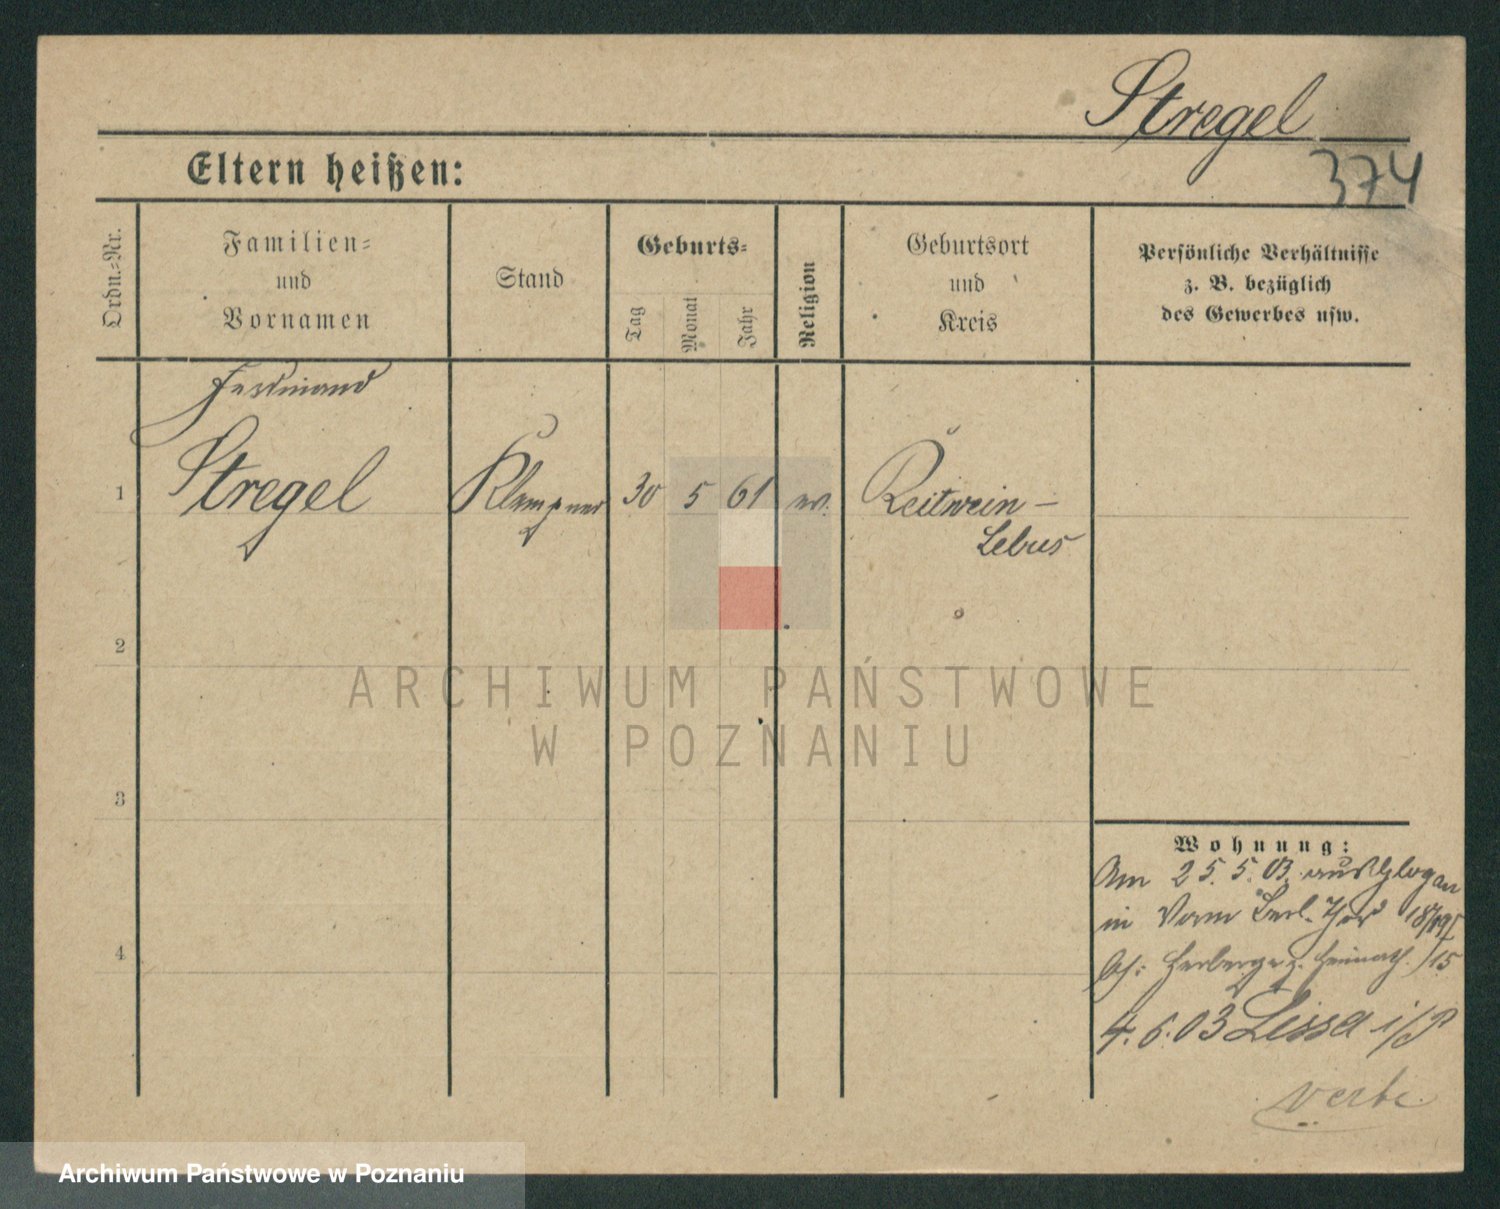 Stregel
374
Eltern heißen:
Ordn.-Nr.
Familien-
und
Vornamen
Stand
Geburts-
Tag
Monat
Jahr
Religion
Geburtsort
und
Kreis
Persönliche Verhältnisse
z. B. bezüglich
des Gewerbes usw.
Ferdinand
1 Stregel Klempner 30 5 61 ev. Reitwein-
Lebus
2
ARCHIWUM PAŃSTWOWE
W POZNANIU
3
Wohnung:
Am 25.5.03. aus Glogau
in Berl. Thor
4
Herberge z. Heimath. 15
4.6.03 Lissa i/P
Archiwum Państwowe w Poznaniu